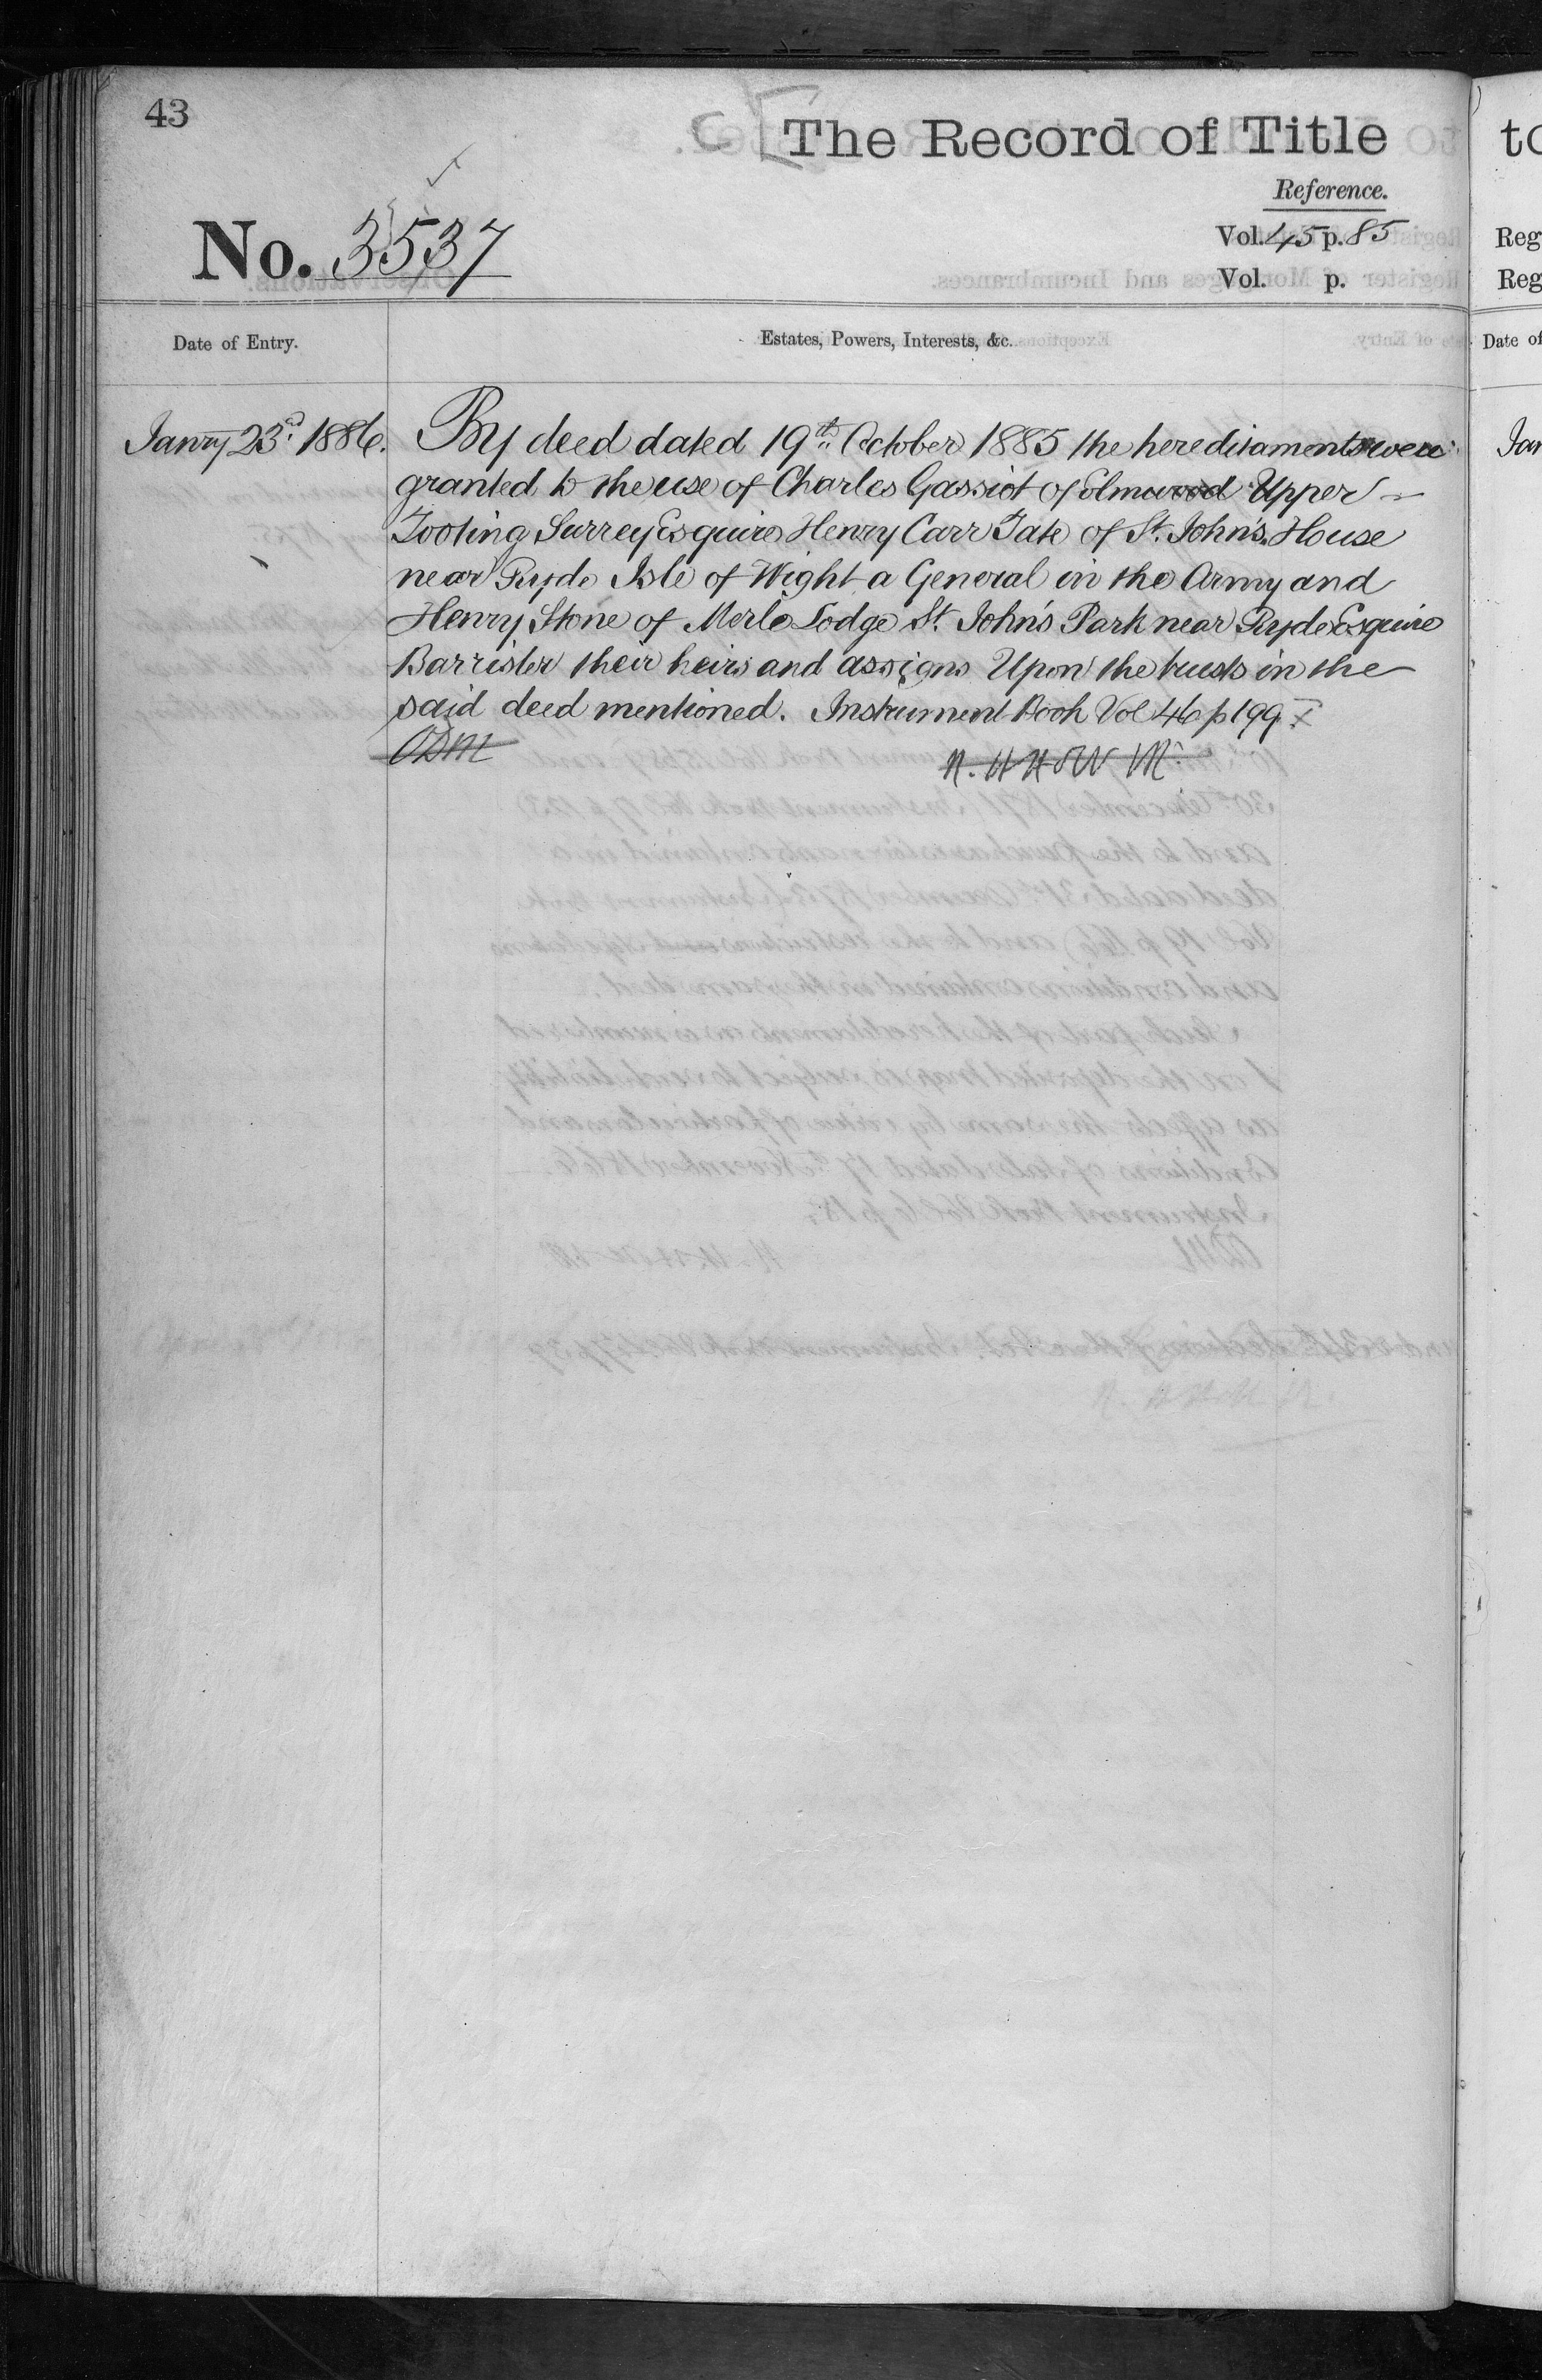 43
C [The Record of Title
Reference.
No. 3537
Vol. 45 p. 85
Vol. p.
Date of Entry.
Estates, Powers, Interests, &c.
Janry 23rd. 1886.
By deed dated 19th October 1885 the hereditaments were
granted to the use of Charles Gassiot of Elmwood Upper
Tooting Surrey Esquire Henry Carr Tate of St. John's House
near Ryde Isle of Wight a General in the Army and
Henry Stone of Merle Lodge St. John's Park near Ryde Esquire
Barrister their heirs and assigns Upon the trusts in the
said deed mentioned. Instrument Book Vol 46 p 199 x
to
Reg
Reg
Date of
Jan